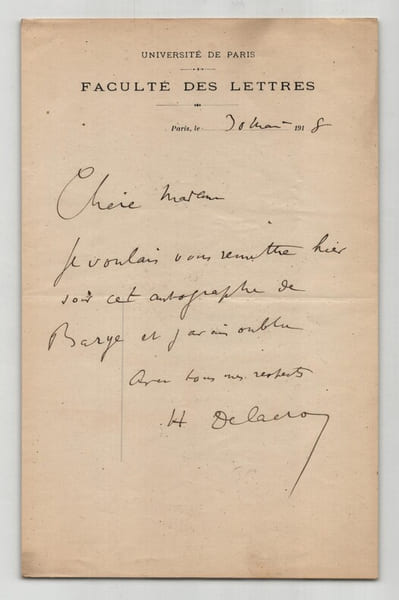 UNIVERSITÉ DE PARIS
FACULTÉ DES LETTRES
Paris, le 30 Mai 1918
Chère Madame
Je voulais vous remettre hier
soir cet autographe de
Barye et j'avais oublié
Avec tous mes respects
H Delacroix